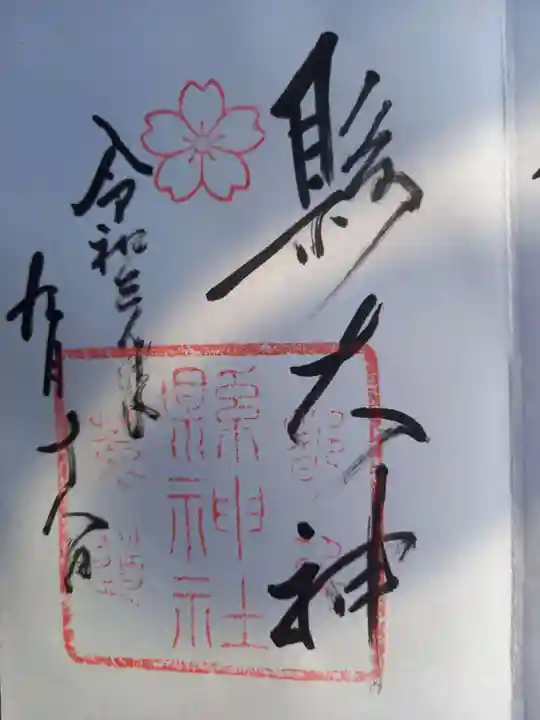 縣大神
縣神社
令和三年
九月十八日